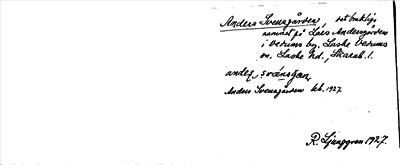 Anders Svensgården, det brukliga
namnet på Lars Andersgården
i Vettums by, Laske Vedums
sn, Laske hd, Skarab. l.
andeʂ svænsgan
Anders Svensgården kb. 1927
R. Ljunggren 1927.